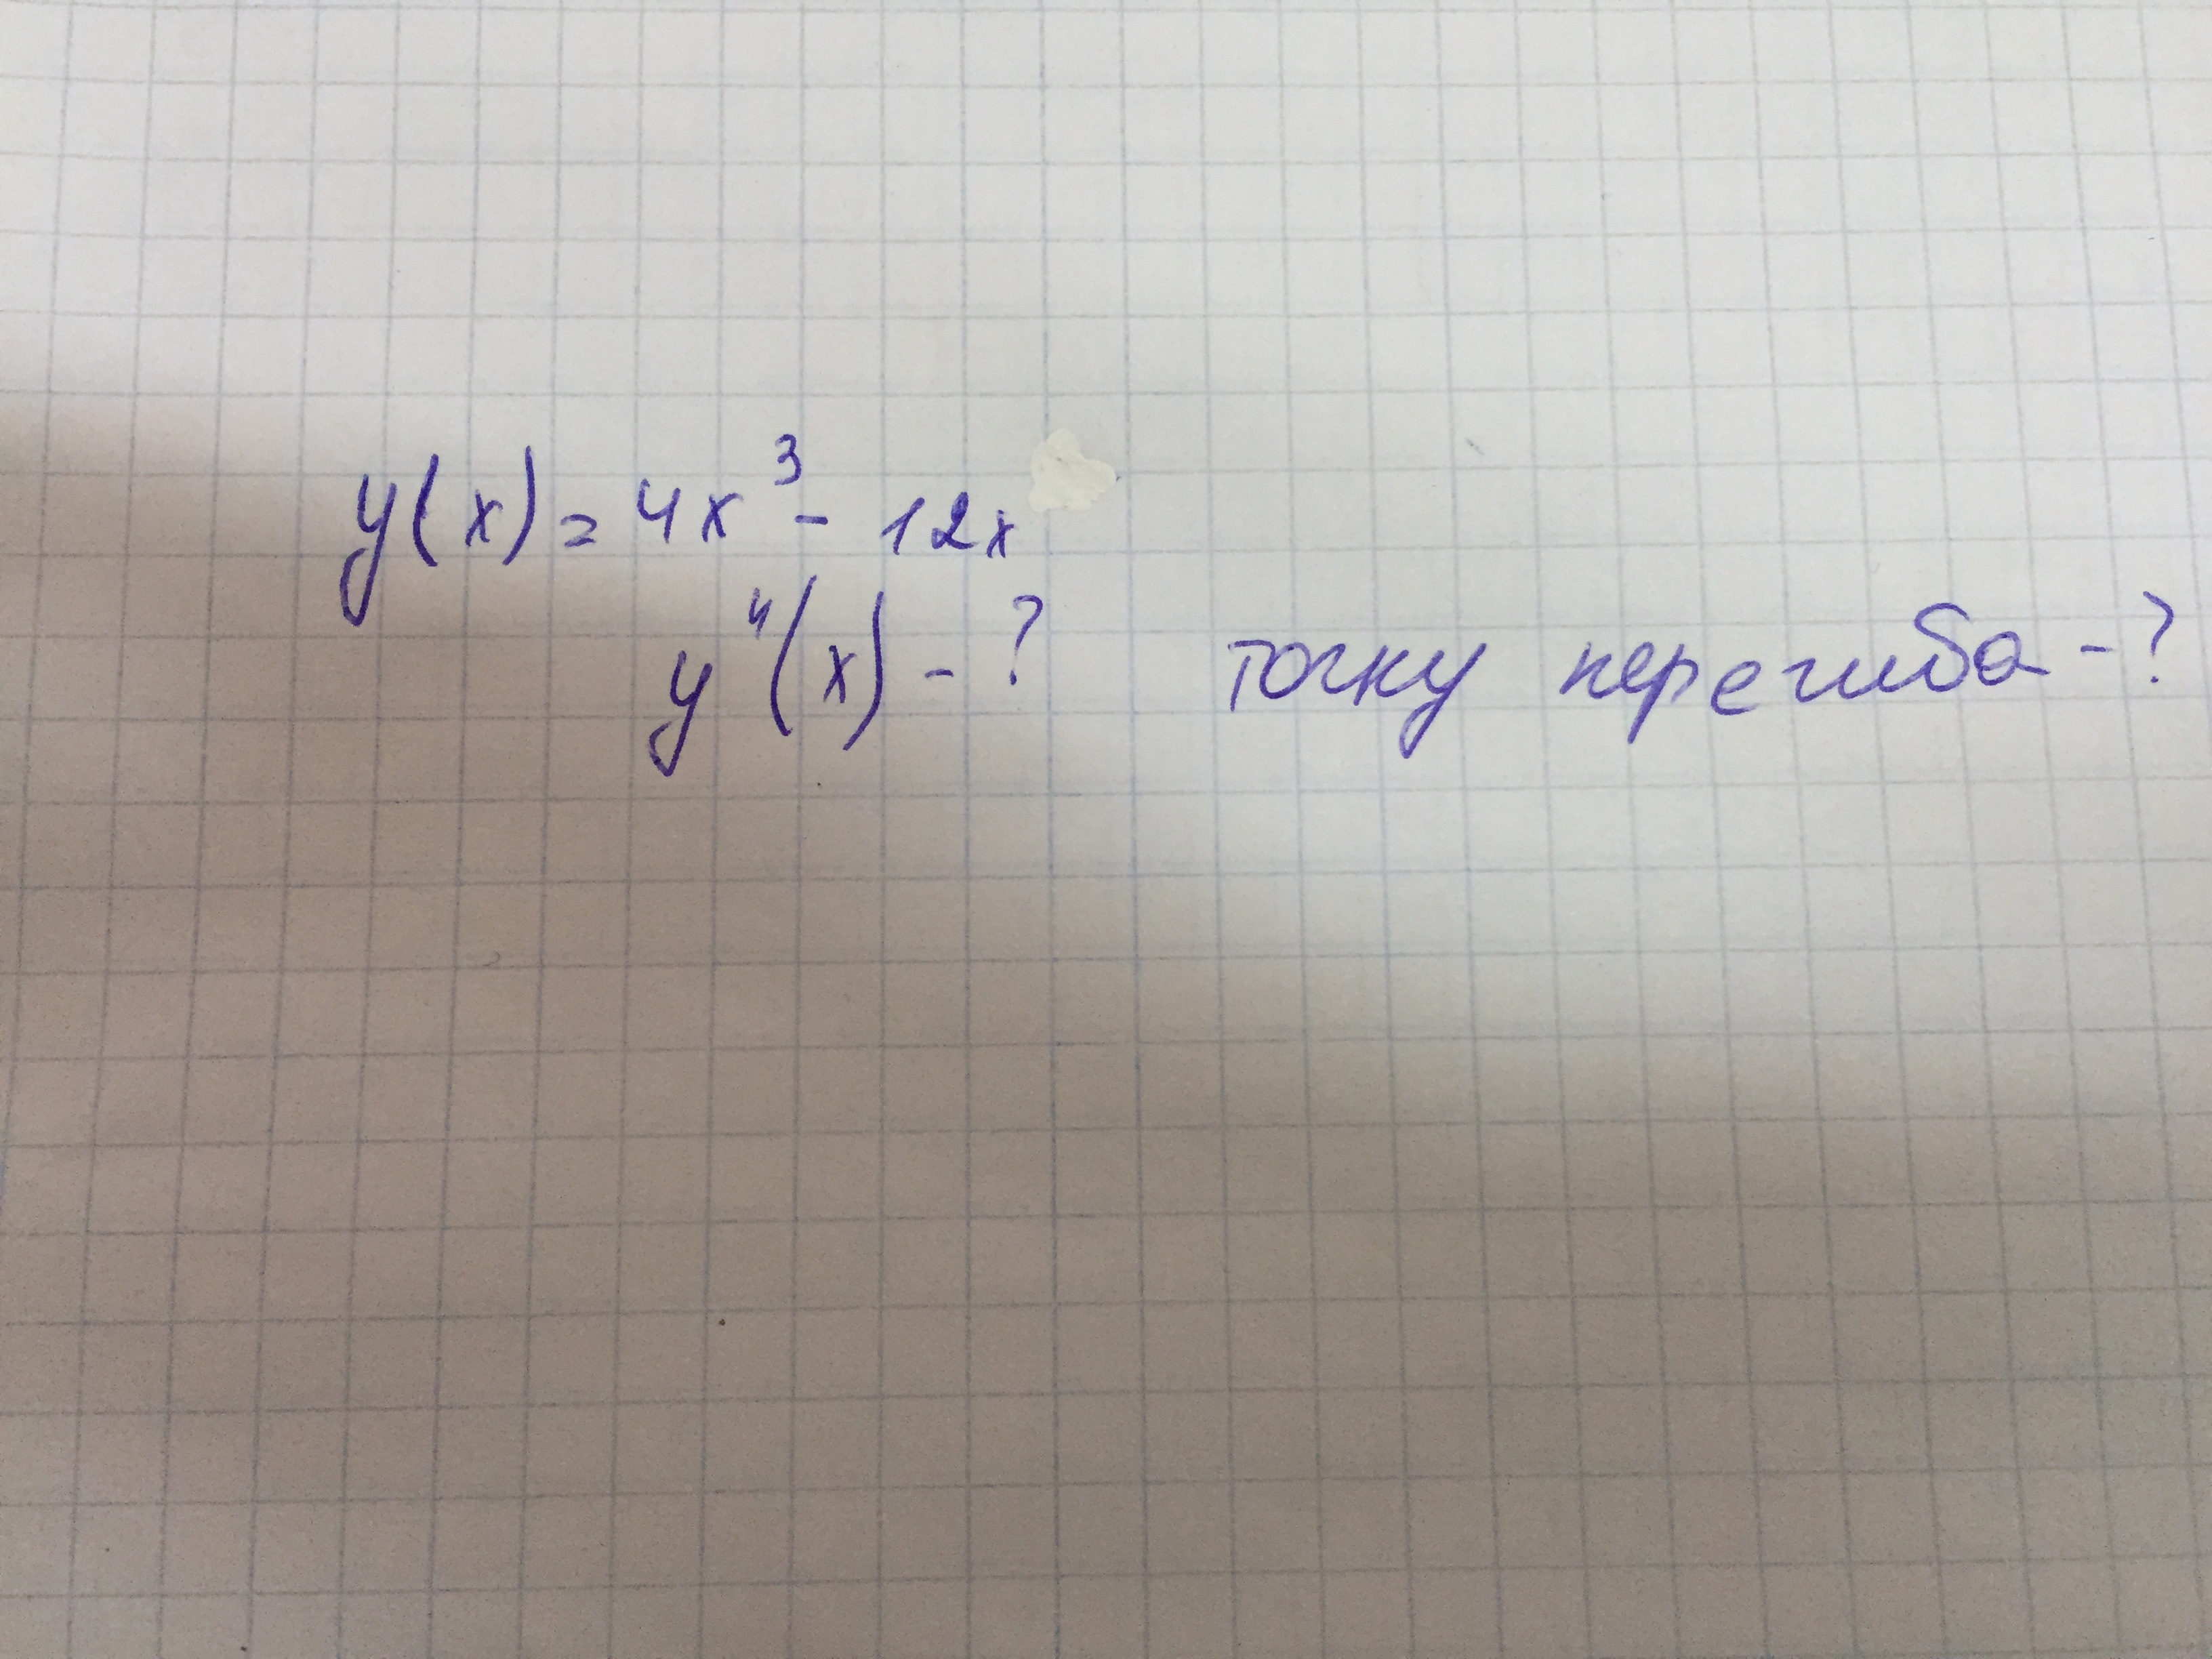 y(x) = 4x³ - 12x
y"(x) - ? точку перегиба - ?